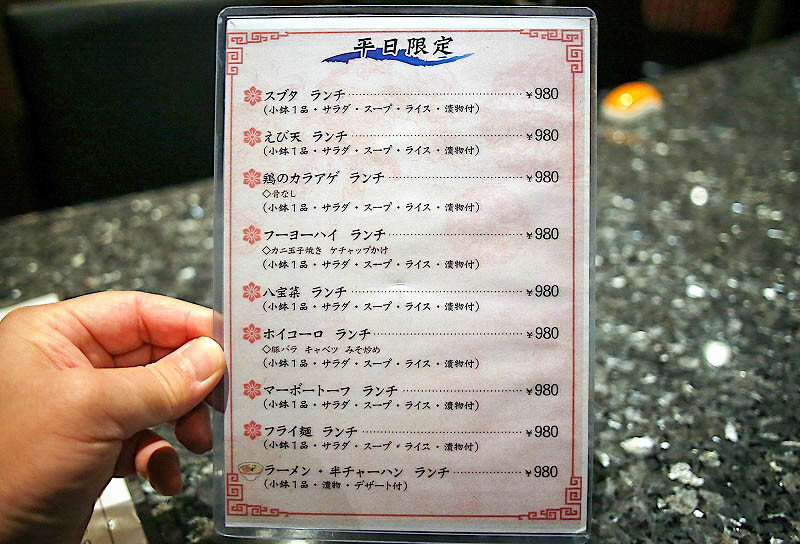 平日限定
スブタ ランチ ¥980
(小鉢1品・サラダ・スープ・ライス・漬物付)
えび天 ランチ ¥980
(小鉢1品・サラダ・スープ・ライス・漬物付)
鶏のカラアゲ ランチ ¥980
◇骨なし
(小鉢1品・サラダ・スープ・ライス・漬物付)
フーヨーハイ ランチ ¥980
◇カニ玉子焼き ケチャップかけ
(小鉢1品・サラダ・スープ・ライス・漬物付)
八宝菜 ランチ ¥980
(小鉢1品・サラダ・スープ・ライス・漬物付)
ホイコーロ ランチ ¥980
◇豚バラ キャベツ みそ炒め
(小鉢1品・サラダ・スープ・ライス・漬物付)
マーボートーフ ランチ ¥980
(小鉢1品・サラダ・スープ・ライス・漬物付)
フライ麺 ランチ ¥980
(小鉢1品・サラダ・スープ・ライス・漬物付)
ラーメン・半チャーハン ランチ ¥980
(小鉢1品・漬物・デザート付)